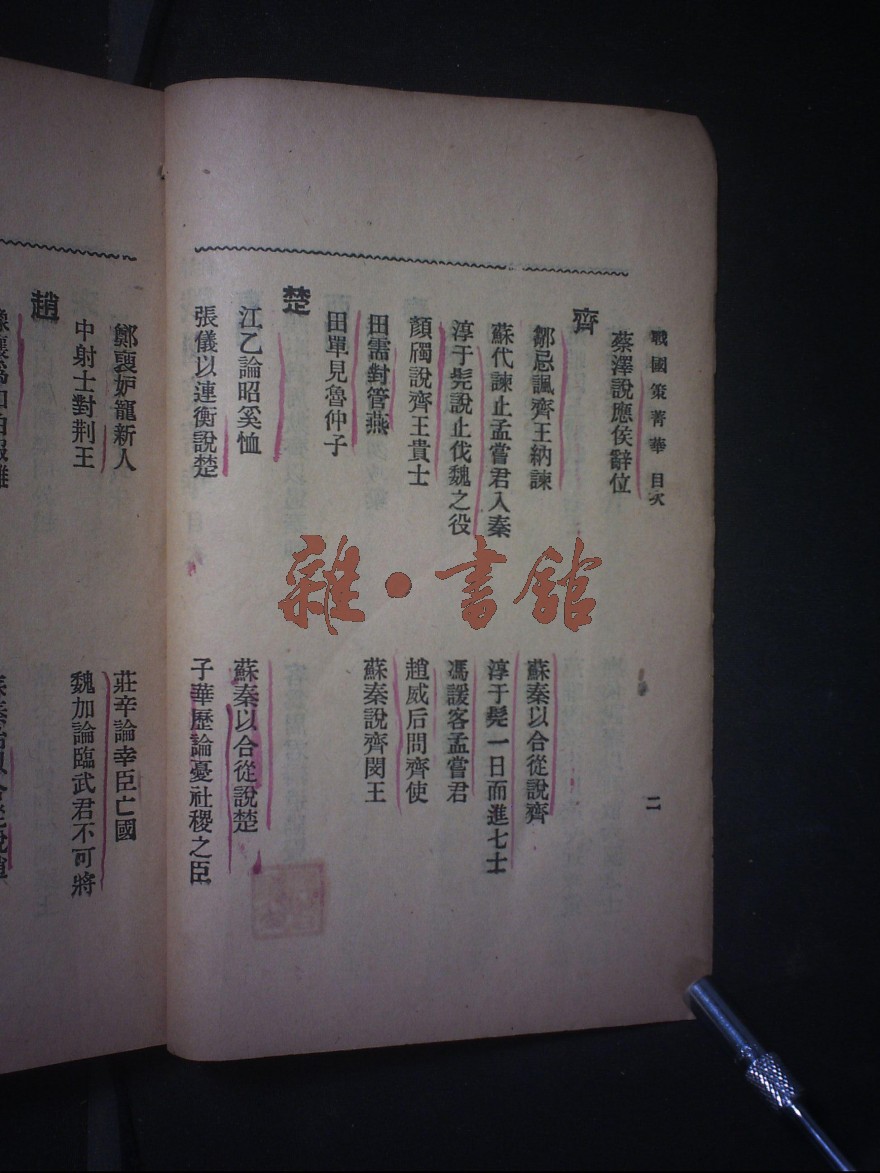 戰國策菁華 目次
二
蔡澤說應侯辭位
齊
鄒忌諷齊王納諫
蘇秦以合從說齊
蘇代諫止孟嘗君入秦
淳于髡一日而進七士
淳于髡說止伐魏之役
馮諼客孟嘗君
顏斶說齊王貴士
趙威后問齊使
田需對管燕
蘇秦說齊閔王
田單見魯仲子
楚
江乙論昭奚恤
蘇秦以合從說楚
張儀以連衡說楚
子華歷論憂社稷之臣
鄭褏妒寵新人
莊辛論幸臣亡國
中射士對荆王
魏加論臨武君不可將
趙
雜·書館